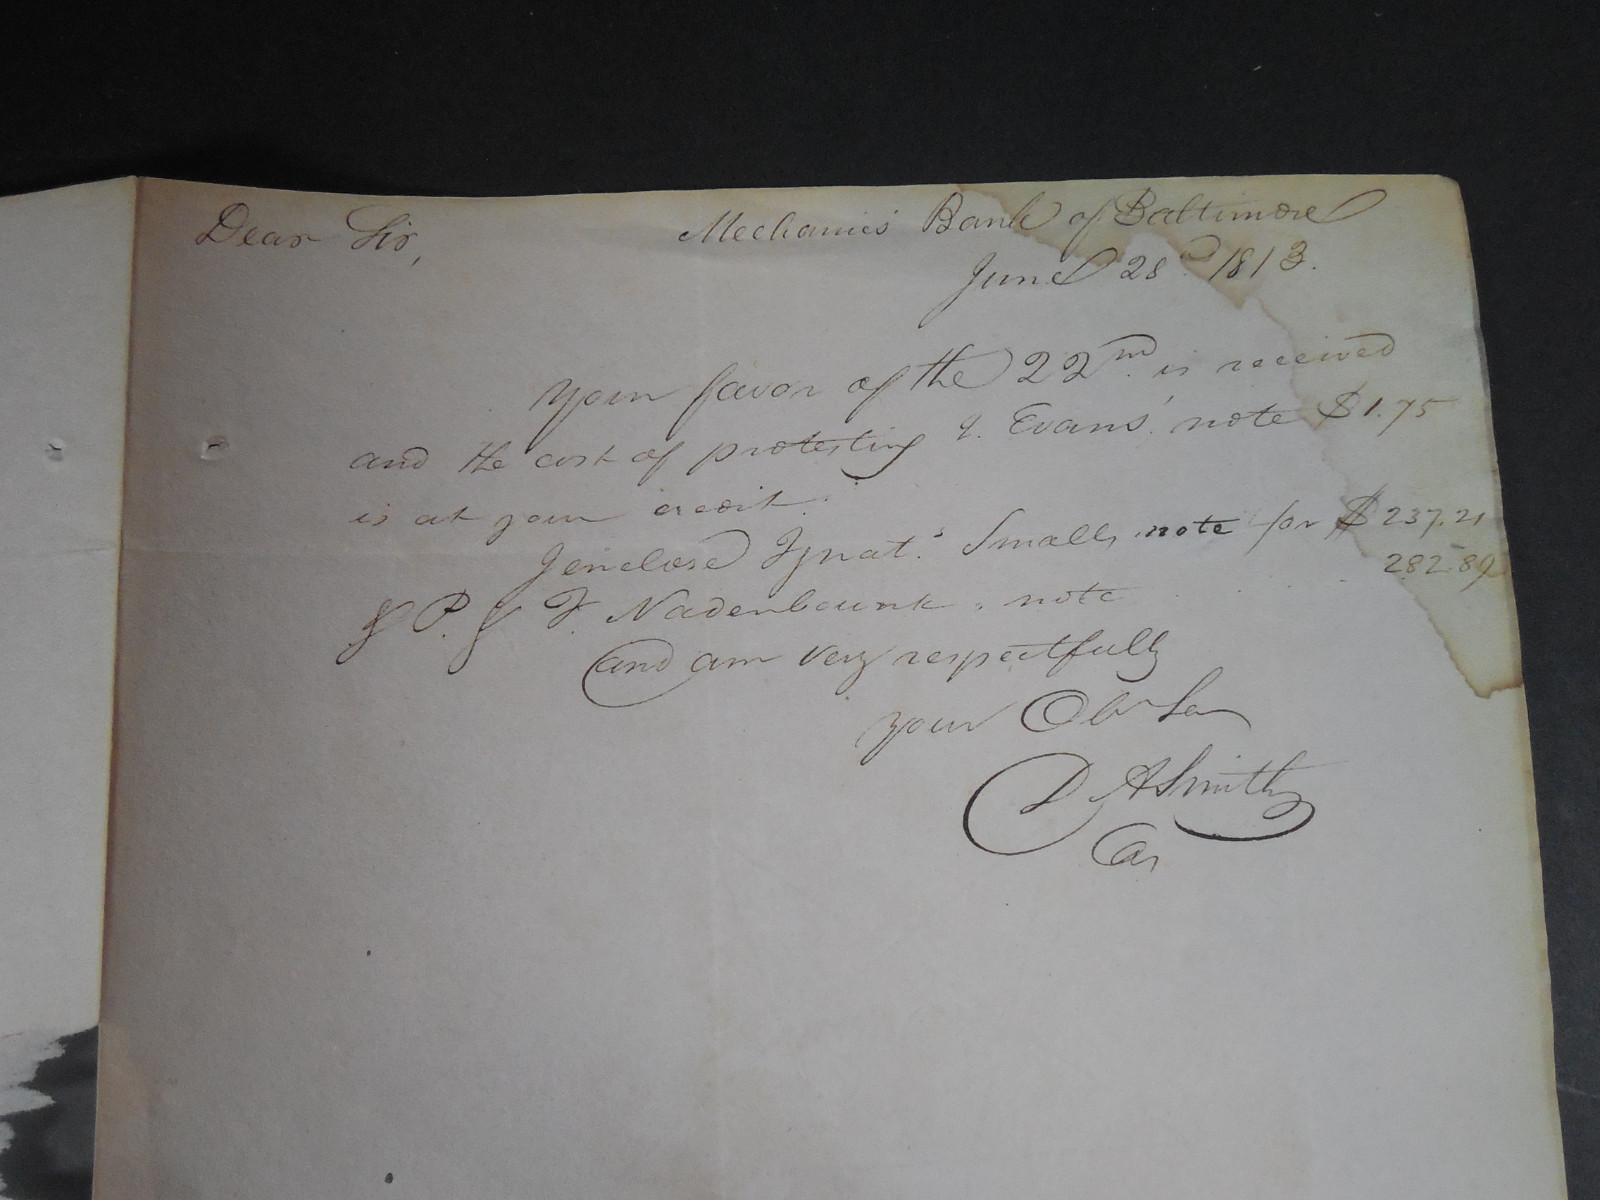 Dear Sir, Mechanics' Bank of Baltimore
June 28th 1813.
your favor of the 22nd. is received
and the cost of protesting J. Evans' note $1.75
is at your credit.
I enclose Ignats. Smalls note for $237.21
& P. & F. Nadenbounk. note 282.89
and am very respectfully
your Obr Ser
D A Smith
Car